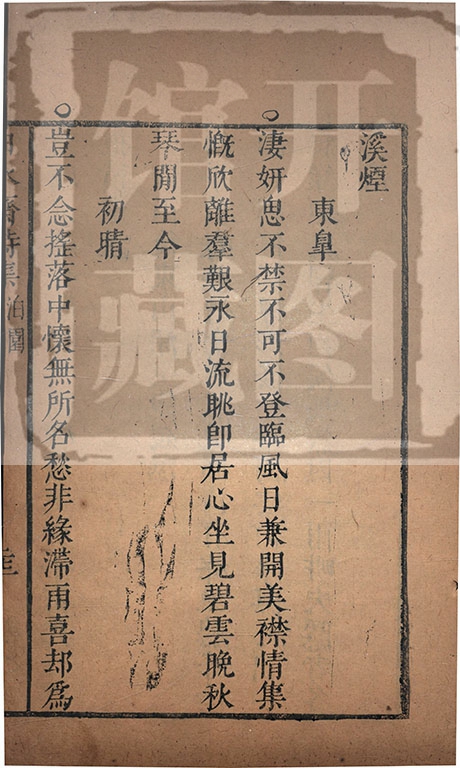 溪煙
東皐
淒妍思不禁不可不登臨風日兼開美襟情集
慨欣離羣艱永日流眺卽居心坐見碧雲晚秋
琴閒至今
初晴
豈不念搖落中懷無所名愁非緣滯雨喜却爲
齋詩集
开图
馆藏